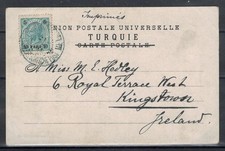 Imprimés
UNION POSTALE UNIVERSELLE
TURQUIE
CARTE POSTALE
Miss M. E. Hedley
6 Royal Terrace West
Kingstown
Ireland.